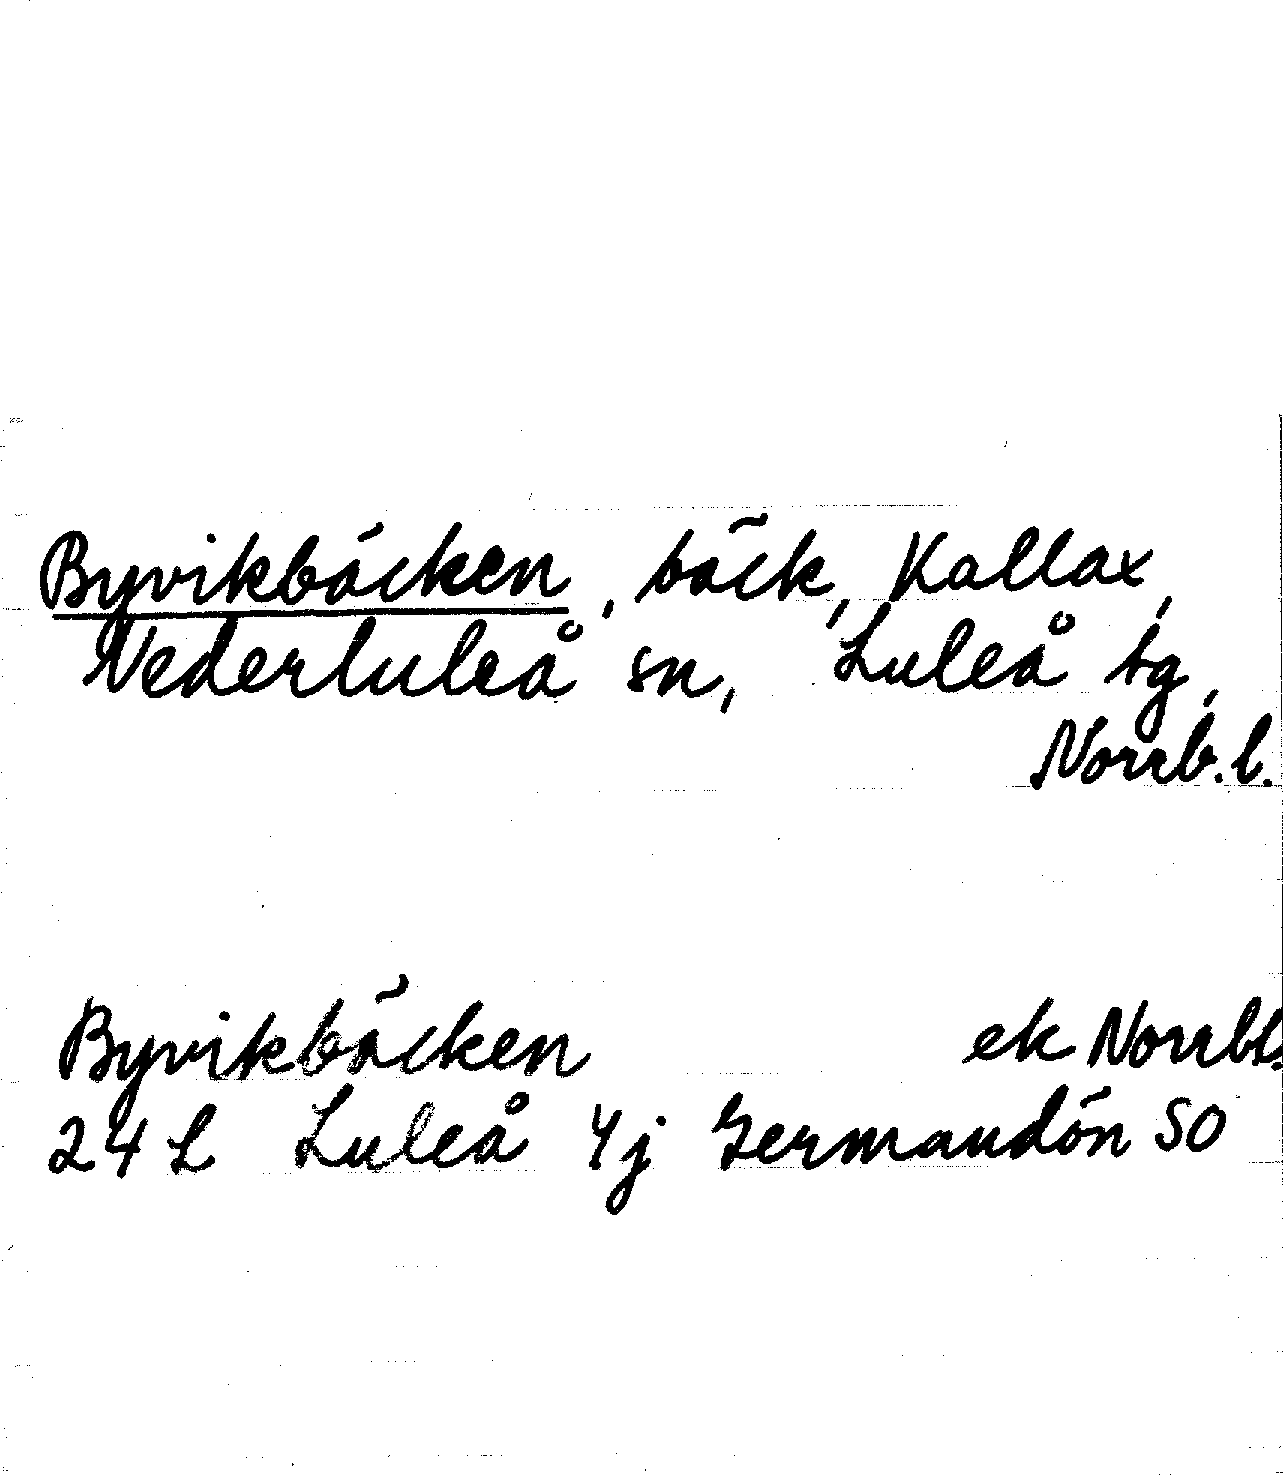 Byvikbäcken, bäck, Kallax,
Nederluleå sn, Luleå tg,
Norrb. l.
Byvikbäcken ek Norrbt.
24 L Luleå 4j Germandön SO